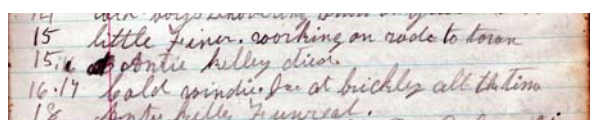 14 boys shovering
15 little finer. working on rode to town
15. Antie Kelley died.
16.17 Cold windie. at brickley all the time
18 Anty Kelley Funreal.